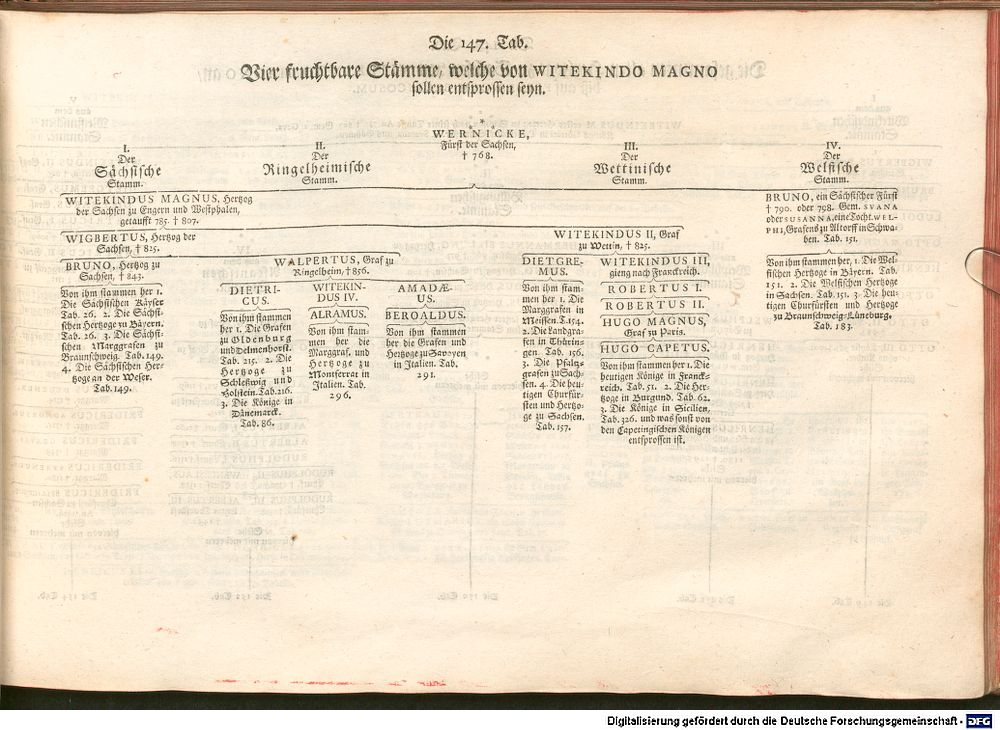 Die 147. Tab.
Vier fruchtbare Stämme, welche von WITEKINDO MAGNO
sollen entsprossen seyn.
*
WERNICKE,
Fürst der Sachsen,
† 768.
I.
Der
Sächsische
Stamm.
II.
Der
Ringelheimische
Stamm.
III.
Der
Wettinische
Stamm.
IV.
Der
Welfische
Stamm.
WITEKINDUS MAGNUS, Hertzog
der Sachsen zu Engern und Westphalen,
getaufft 785. † 807.
BRUNO, ein Sächsischer Fürst
† 790. oder 798. Gem. SVANA
oder SUSANNA, eine Tocht. WEL-
PHI, Grafens zu Altorff in Schwa-
ben. Tab. 151.
WIGBERTUS, Hertzog der
Sachsen, † 825.
WITEKINDUS II, Graf
zu Wettin, † 825.
BRUNO, Hertzog zu
Sachsen, † 843.
Von ihm stammen her 1.
Die Sächsischen Käyser
Tab. 26. 2. Die Sächsi-
schen Hertzoge zu Bäyern.
Tab. 26. 3. Die Sächsi-
schen Marggrafen zu
Braunschweig. Tab. 149.
4. Die Sächsischen Her-
tzoge an der Weser.
Tab. 149.
WALPERTUS, Graf zu
Ringelheim, † 856.
DIETRI-
CUS.
Von ihm stammen
her 1. Die Grafen
zu Oldenburg
und Delmenhorst.
Tab. 215. 2. Die
Hertzoge zu
Schleßwig und
Holstein. Tab. 216.
3. Die Könige in
Dänemarck.
Tab. 86.
WITEKIN-
DUS IV.
ALRAMUS.
Von ihm stam-
men her die
Marggraf. und
Hertzoge zu
Montferrat in
Italien. Tab.
296.
AMADÆ-
US.
BEROALDUS.
Von ihm stammen
her die Grafen und
Hertzoge zu Savoyen
in Italien. Tab.
291.
DIETGRE-
MUS.
Von ihm stam-
men her 1. Die
Marggrafen in
Meissen. T. 154.
2. Die Landgra-
fen in Thürin-
gen. Tab. 156.
3. Die Pfaltz-
grafen zu Sach-
sen. 4. Die heu-
tigen Churfür-
sten und Hertzo-
ge zu Sachsen.
Tab. 157.
WITEKINDUS III,
gieng nach Franckreich.
ROBERTUS I.
ROBERTUS II.
HUGO MAGNUS,
Graf zu Paris.
HUGO CAPETUS.
Von ihm stammen her 1. Die
heutigen Könige in Franck-
reich. Tab. 51. 2. Die Her-
tzoge in Burgund. Tab. 62.
3. Die Könige in Sicilien,
Tab. 326. und was sonst von
den Capetingischen Königen
entsprossen ist.
Von ihm stammen her, 1. Die Wel-
fischen Hertzoge in Bäyern. Tab.
151. 2. Die Welfischen Hertzoge
in Sachsen. Tab. 151. 3. Die heu-
tigen Churfürsten und Hertzoge
zu Braunschweig-Lüneburg.
Tab. 183.
Digitalisierung gefördert durch die Deutsche Forschungsgemeinschaft - DFG